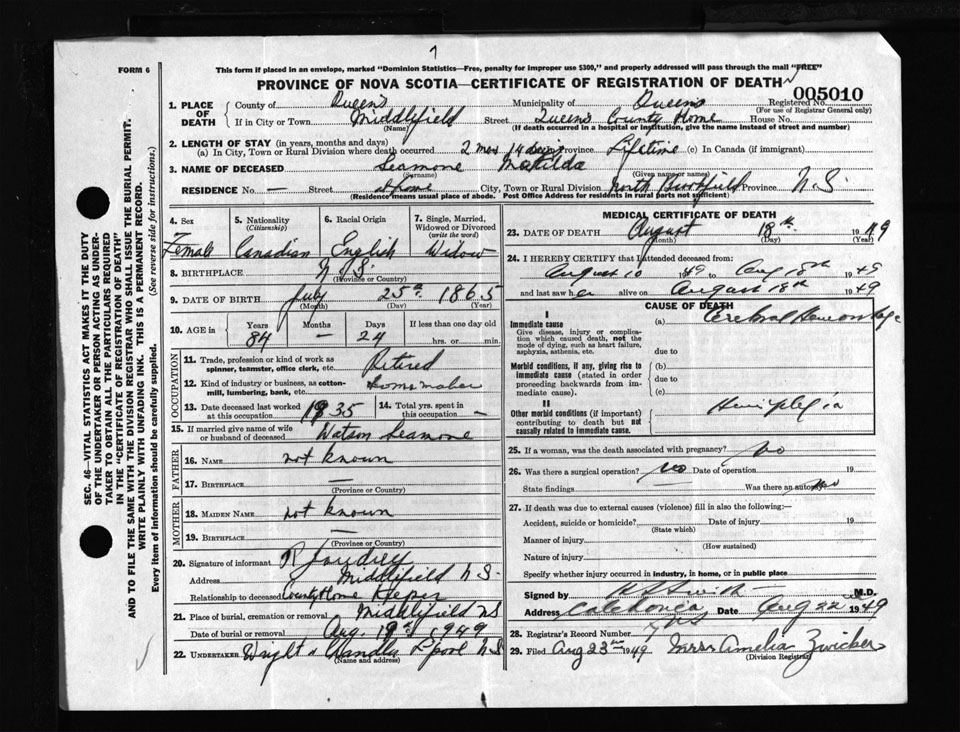 7
FORM 6
This form if placed in an envelope, marked "Dominion Statistics—Free, penalty for improper use $300," and properly addressed will pass through the mail "FREE"
PROVINCE OF NOVA SCOTIA—CERTIFICATE OF REGISTRATION OF DEATH
005010
1. PLACE OF DEATH
County of Queens Municipality of Queens Registered No.
(For use of Registrar General only)
If in City or Town Middlefield Street Queens County Home House No.
(Name) (If death occurred in a hospital or institution, give the name instead of street and number)
2. LENGTH OF STAY (in years, months and days)
(a) In City, Town or Rural Division where death occurred 2 mos 14 days Province Lifetime (c) In Canada (if immigrant)
3. NAME OF DECEASED Seamone Matilda
(Surname) (Given name or names)
RESIDENCE No. — Street at home City, Town or Rural Division North Brookfield Province N.S.
(Residence means usual place of abode. Post Office Address for residents in rural parts not sufficient)
4. Sex
Female
5. Nationality
(Citizenship)
Canadian
6. Racial Origin
English
7. Single, Married, Widowed or Divorced
(write the word)
Widow
8. BIRTHPLACE N.S.
(Province or Country)
9. DATE OF BIRTH July 25th 1865
(Month) (Day) (Year)
10. AGE in
Years Months Days If less than one day old
84 — 24 hrs. or min.
OCCUPATION
11. Trade, profession or kind of work as spinner, teamster, office clerk, etc. Retired
12. Kind of industry or business, as cotton-mill, lumbering, bank, etc. Home maker
13. Date deceased last worked at this occupation 1935
14. Total yrs. spent in this occupation —
15. If married give name of wife or husband of deceased Watson Seamone
FATHER
16. NAME not known
17. BIRTHPLACE —
(Province or Country)
MOTHER
18. MAIDEN NAME not known
19. BIRTHPLACE —
(Province or Country)
20. Signature of informant R Joudrey
Address Middlefield N.S.
Relationship to deceased County Home Keeper
21. Place of burial, cremation or removal Middlefield N.S
Date of burial or removal Aug. 19th 1949
22. UNDERTAKER Wright & L'pool N.S
(Name and address)
MEDICAL CERTIFICATE OF DEATH
23. DATE OF DEATH August 18th 1949
(Month) (Day) (Year)
24. I HEREBY CERTIFY that I attended deceased from:
August 10 1949 to Aug 18th 1949
and last saw her alive on August 18th 1949
CAUSE OF DEATH
I
Immediate cause
Give disease, injury or complication which caused death, not the mode of dying, such as heart failure, asphyxia, asthenia, etc.
(a) Cerebral Hemorrhage
due to
Morbid conditions, if any, giving rise to immediate cause (stated in order proceeding backwards from immediate cause).
(b)
due to
(c)
II
Other morbid conditions (if important) contributing to death but not causally related to immediate cause.
Hemiplegia
25. If a woman, was the death associated with pregnancy? No
26. Was there a surgical operation? No Date of operation 19
State findings Was there an autopsy No
27. If death was due to external causes (violence) fill in also the following:—
Accident, suicide or homicide? Date of injury 19
(State which)
Manner of injury
(How sustained)
Nature of injury
Specify whether injury occurred in industry, in home, or in public place
Signed by Smith M.D.
Address Caledonia Date Aug 22 1949
N.S
28. Registrar's Record Number 7
29. Filed Aug 23rd 1949 Mrs Amelia Zwicker
(Division Registrar)
SEC. 46—VITAL STATISTICS ACT MAKES IT THE DUTY
OF THE UNDERTAKER OR PERSON ACTING AS UNDER-
TAKER TO OBTAIN ALL THE PARTICULARS REQUIRED
IN THE "CERTIFICATE OF REGISTRATION OF DEATH"
AND TO FILE THE SAME WITH THE DIVISION REGISTRAR WHO SHALL ISSUE THE BURIAL PERMIT.
WRITE PLAINLY WITH UNFADING INK. THIS IS A PERMANENT RECORD.
Every item of information should be carefully supplied. (See reverse side for instructions.)